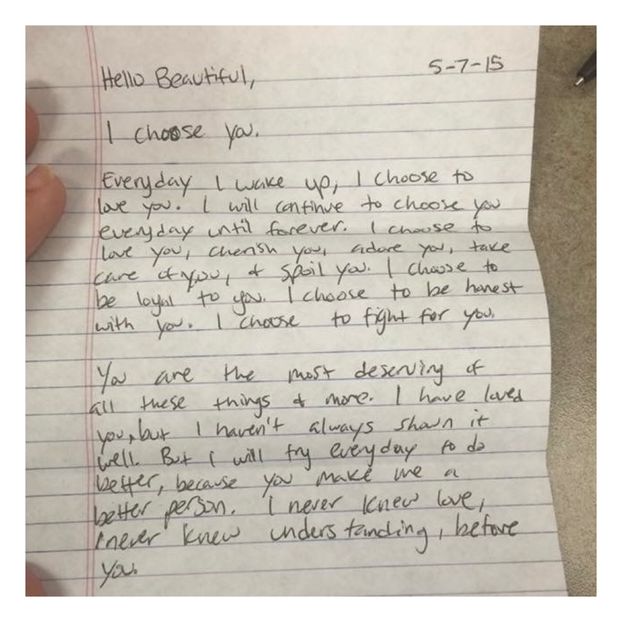 5-7-15
Hello Beautiful,
I choose you.
Everyday I wake up, I choose to
love you. I will continue to choose you
everyday until forever. I choose to
love you, cherish you, adore you, take
care of you, & spoil you. I choose to
be loyal to you. I choose to be honest
with you. I choose to fight for you.
You are the most deserving of
all these things & more. I have loved
you, but I haven't always shown it
well. But I will try everyday to do
better, because you make me a
better person. I never knew love,
I never knew understanding, before
you.